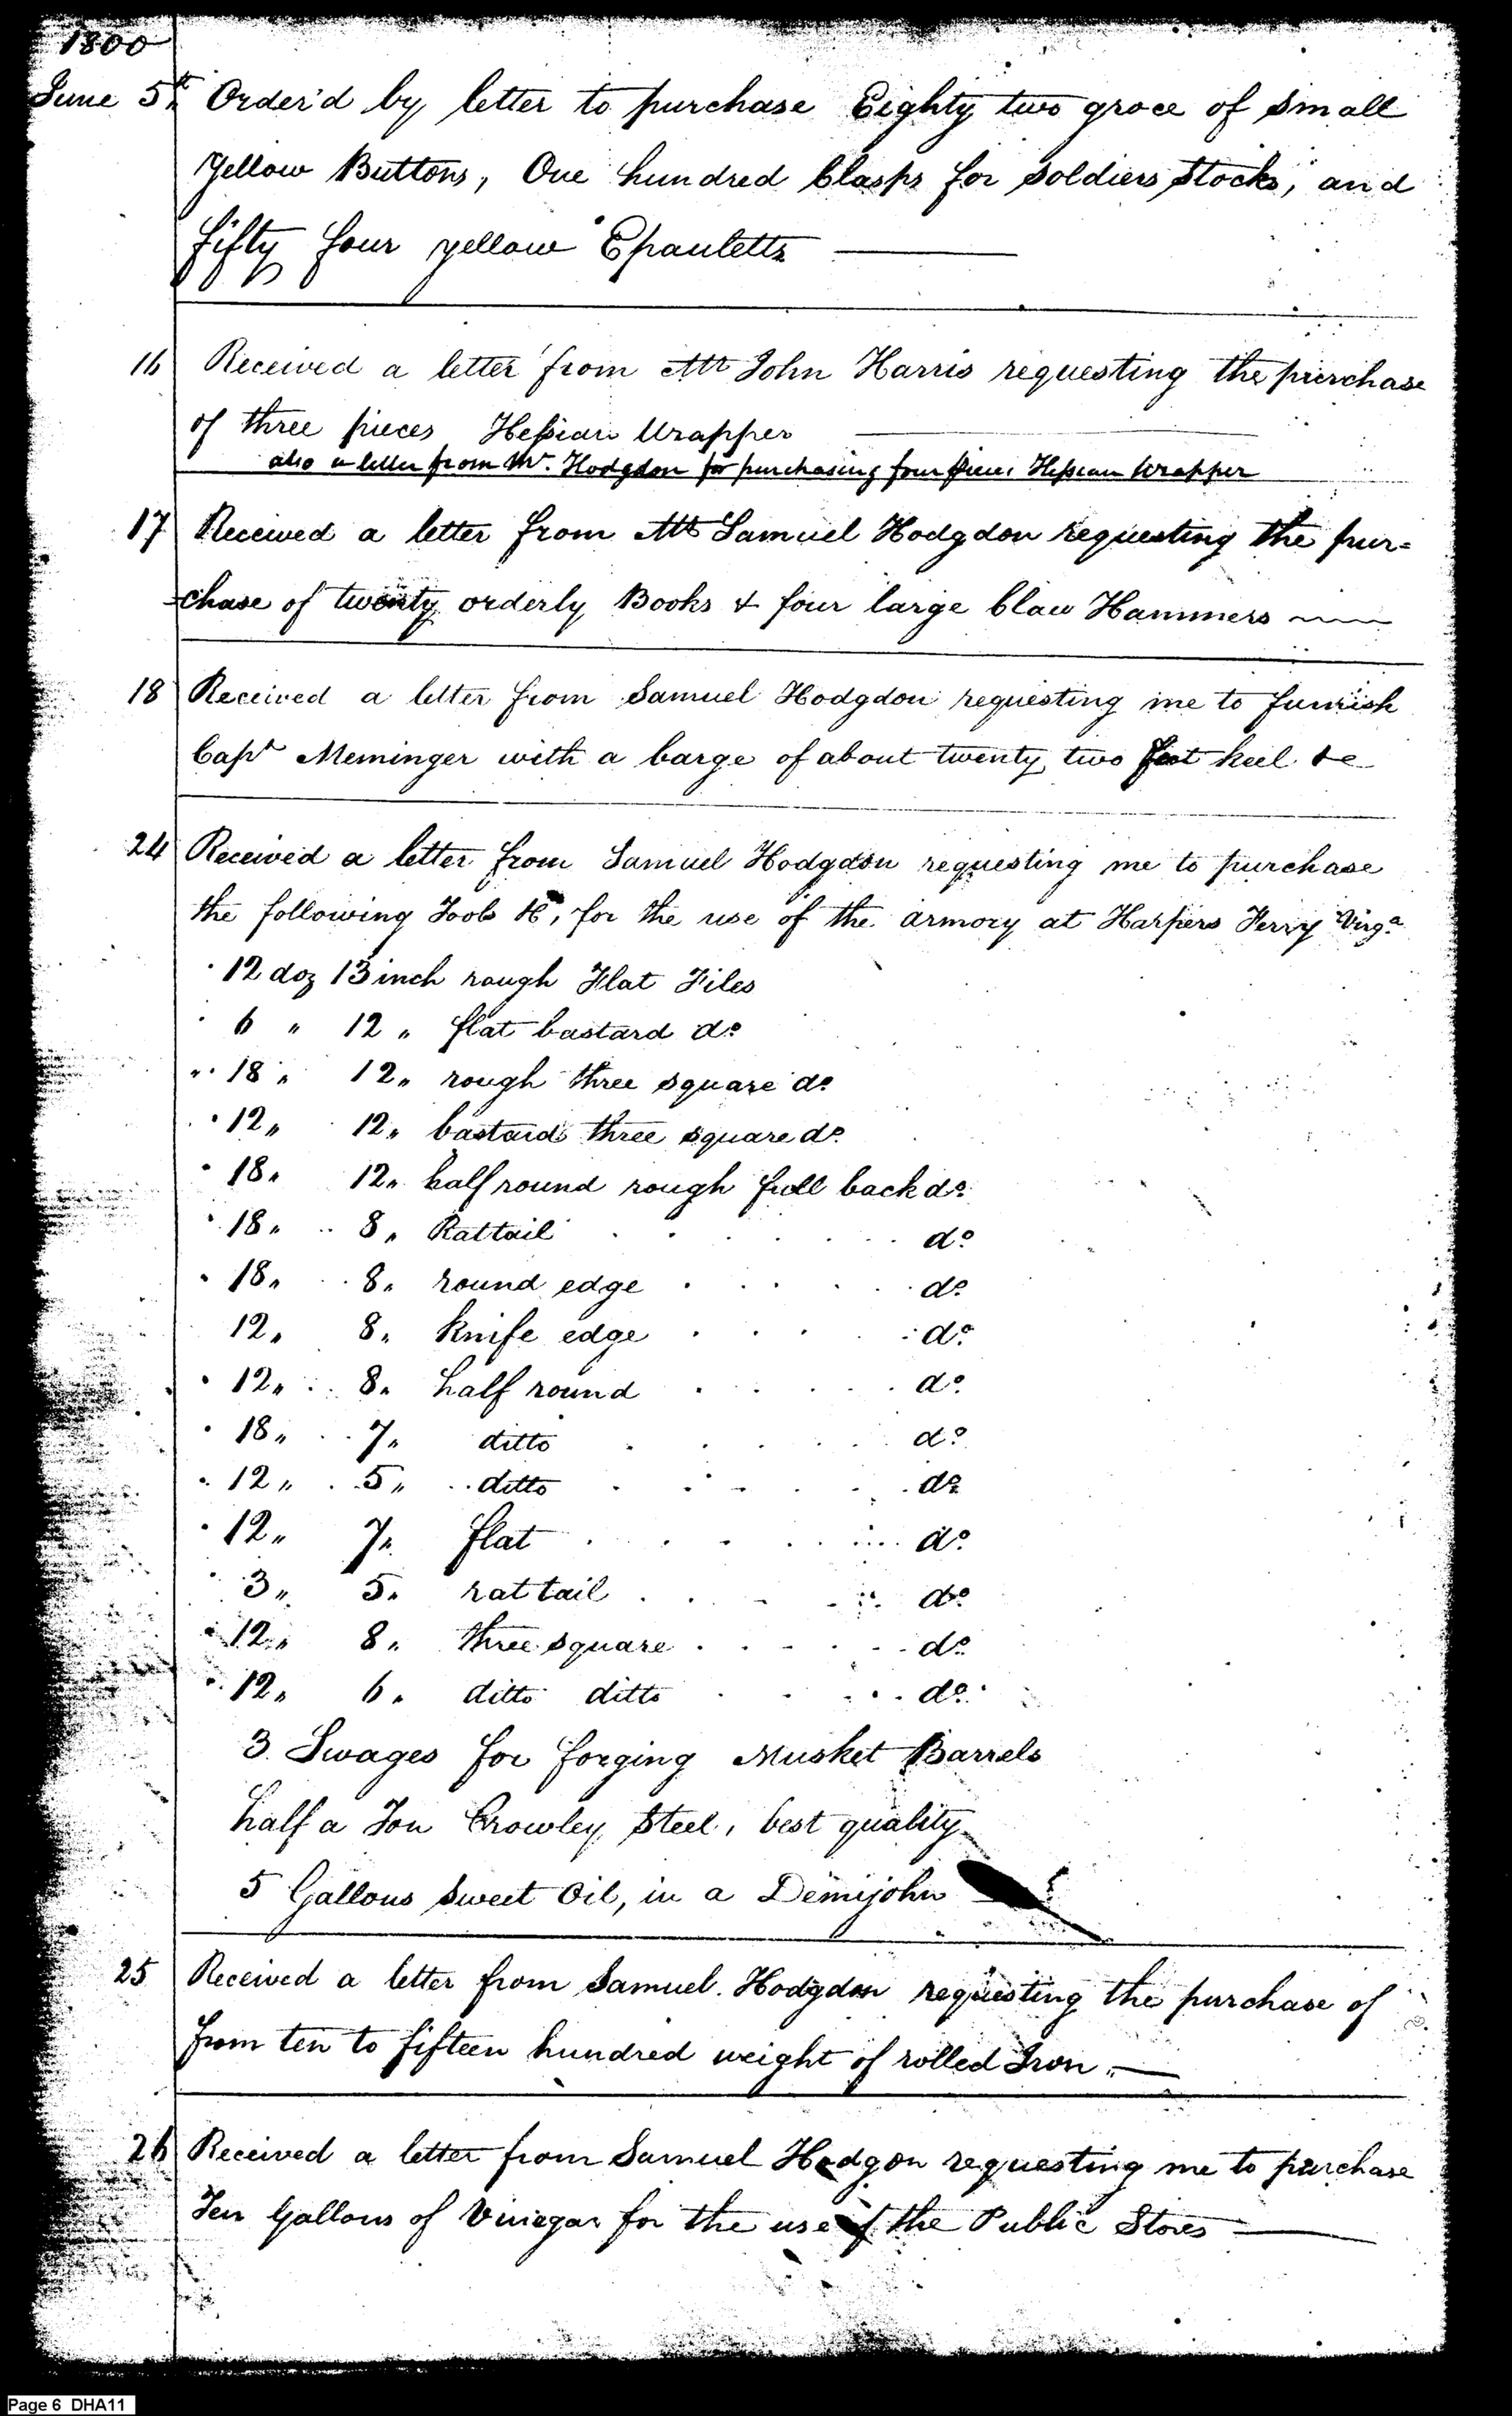 1800
June 5th Order'd by letter to purchase Eighty two groce of small
Yellow Buttons, One hundred Clasps for soldiers stocks, and
fifty four yellow Epauletts
16 Received a letter from Mr John Harris requesting the purchase
of three pieces Hessian Wrapper
also a letter from Mr. Hodgdon for purchasing four pieces Hessian Wrapper
17 Received a letter from Mr Samuel Hodgdon requesting the pur=
=chase of twenty orderly Books & four large Claw Hammers
18 Received a letter from Samuel Hodgdon requesting me to furnish
Capt Meminger with a barge of about twenty two feet keel &c
24 Received a letter from Samuel Hodgdon requesting me to purchase
the following Tools &c, for the use of the armory at Harpers Ferry Virga
12 doz 13 inch rough Flat Files
6 " 12 " flat bastard do
18 " 12 " rough three square do
12 " 12 " bastard three square do
18 " 12 " half round rough full back do
18 " 8 " Rattail do
18 " 8 " round edge do
12 " 8 " knife edge do
12 " 8 " half round do
18 " 7 " ditto do
12 " 5 " ditto do
12 " 7 " flat do
3 " 5 " rattail do
12 " 8 " three square do
12 " 6 " ditto ditto do
3 Swages for forging Musket Barrels
half a Ton Crowley Steel, best quality
5 Gallons Sweet Oil, in a Demijohn
25 Received a letter from Samuel Hodgdon requesting the purchase of
from ten to fifteen hundred weight of rolled Iron
26 Received a letter from Samuel Hodgon requesting me to purchase
Ten Gallons of Vinegar for the use of the Public Stores
Page 6 DHA11